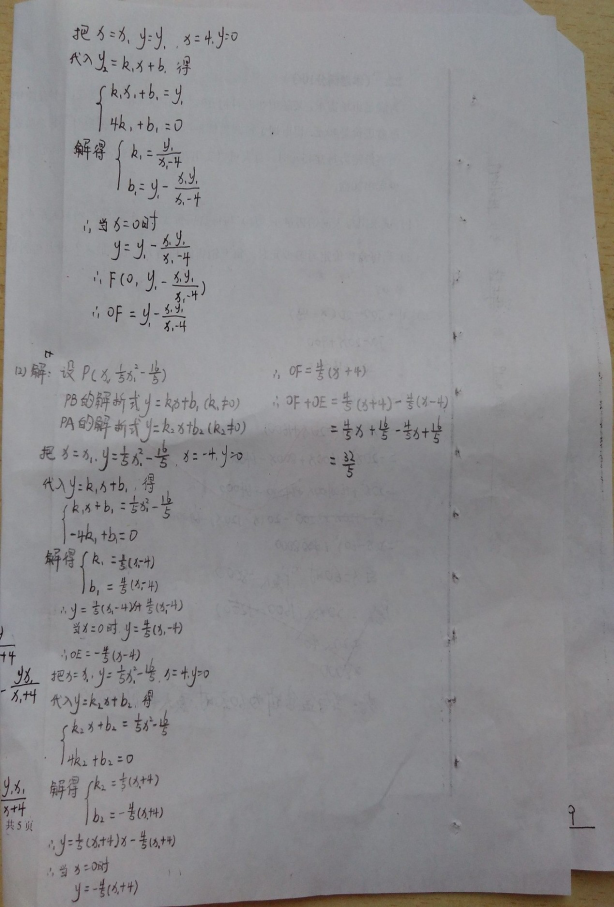 把x=x₁ y=y₁, x=4,y=0
代入y₂=k₁x+b₁ 得
{k₁x₁+b₁=y₁
4k₁+b₁=0
解得{k₁=y₁/(x₁-4)
b₁=y₁-x₁y₁/(x₁-4)
∴当x=0时
y=y₁-x₁y₁/(x₁-4)
∴F(0, y₁-x₁y₁/(x₁-4))
∴OF=y₁-x₁y₁/(x₁-4)
(2)解:设P(x₁,1/5x₁²-16/5)
PB的解析式y=k₁x+b₁(k₁≠0)
PA的解析式y=k₂x+b₂(k₂≠0)
把x=x₁,y=1/5x₁²-16/5,x=-4,y=0
代入y=k₁x+b₁,得
{k₁x+b₁=1/5x²-16/5
-4k₁+b₁=0
解得{k₁=1/5(x₁-4)
b₁=4/5(x₁-4)
∴y=1/5(x₁-4)x+4/5(x₁-4)
当x=0时 y=4/5(x₁-4)
∴OE=-4/5(x-4)
把x=x₁,y=1/5x₁²-16/5,x=4,y=0
代入y=k₂x+b₂,得
{k₂x+b₂=1/5x²-16/5
4k₂+b₂=0
解得{k₂=1/5(x₁+4)
b₂=-4/5(x₁+4)
∴y=1/5(x₁+4)x-4/5(x₁+4)
∴当x=0时
y=-4/5(x₁+4)
∴OF=4/5(x+4)
∴OF+OE=4/5(x+4)-4/5(x-4)
=4/5x+16/5-4/5x+16/5
=32/5
y
+4
-yx₁/(x₁+4)
y₁x₁/(x+4)
共5页
9